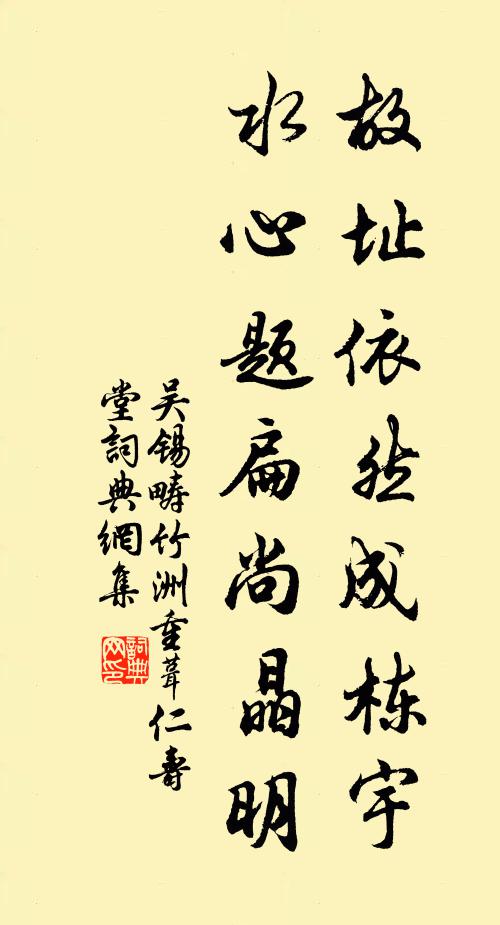 故址依然成栋宇
水心题扁尚晶明
吴锡畴竹洲重葺仁壽
堂詞典網集
詞典
网印